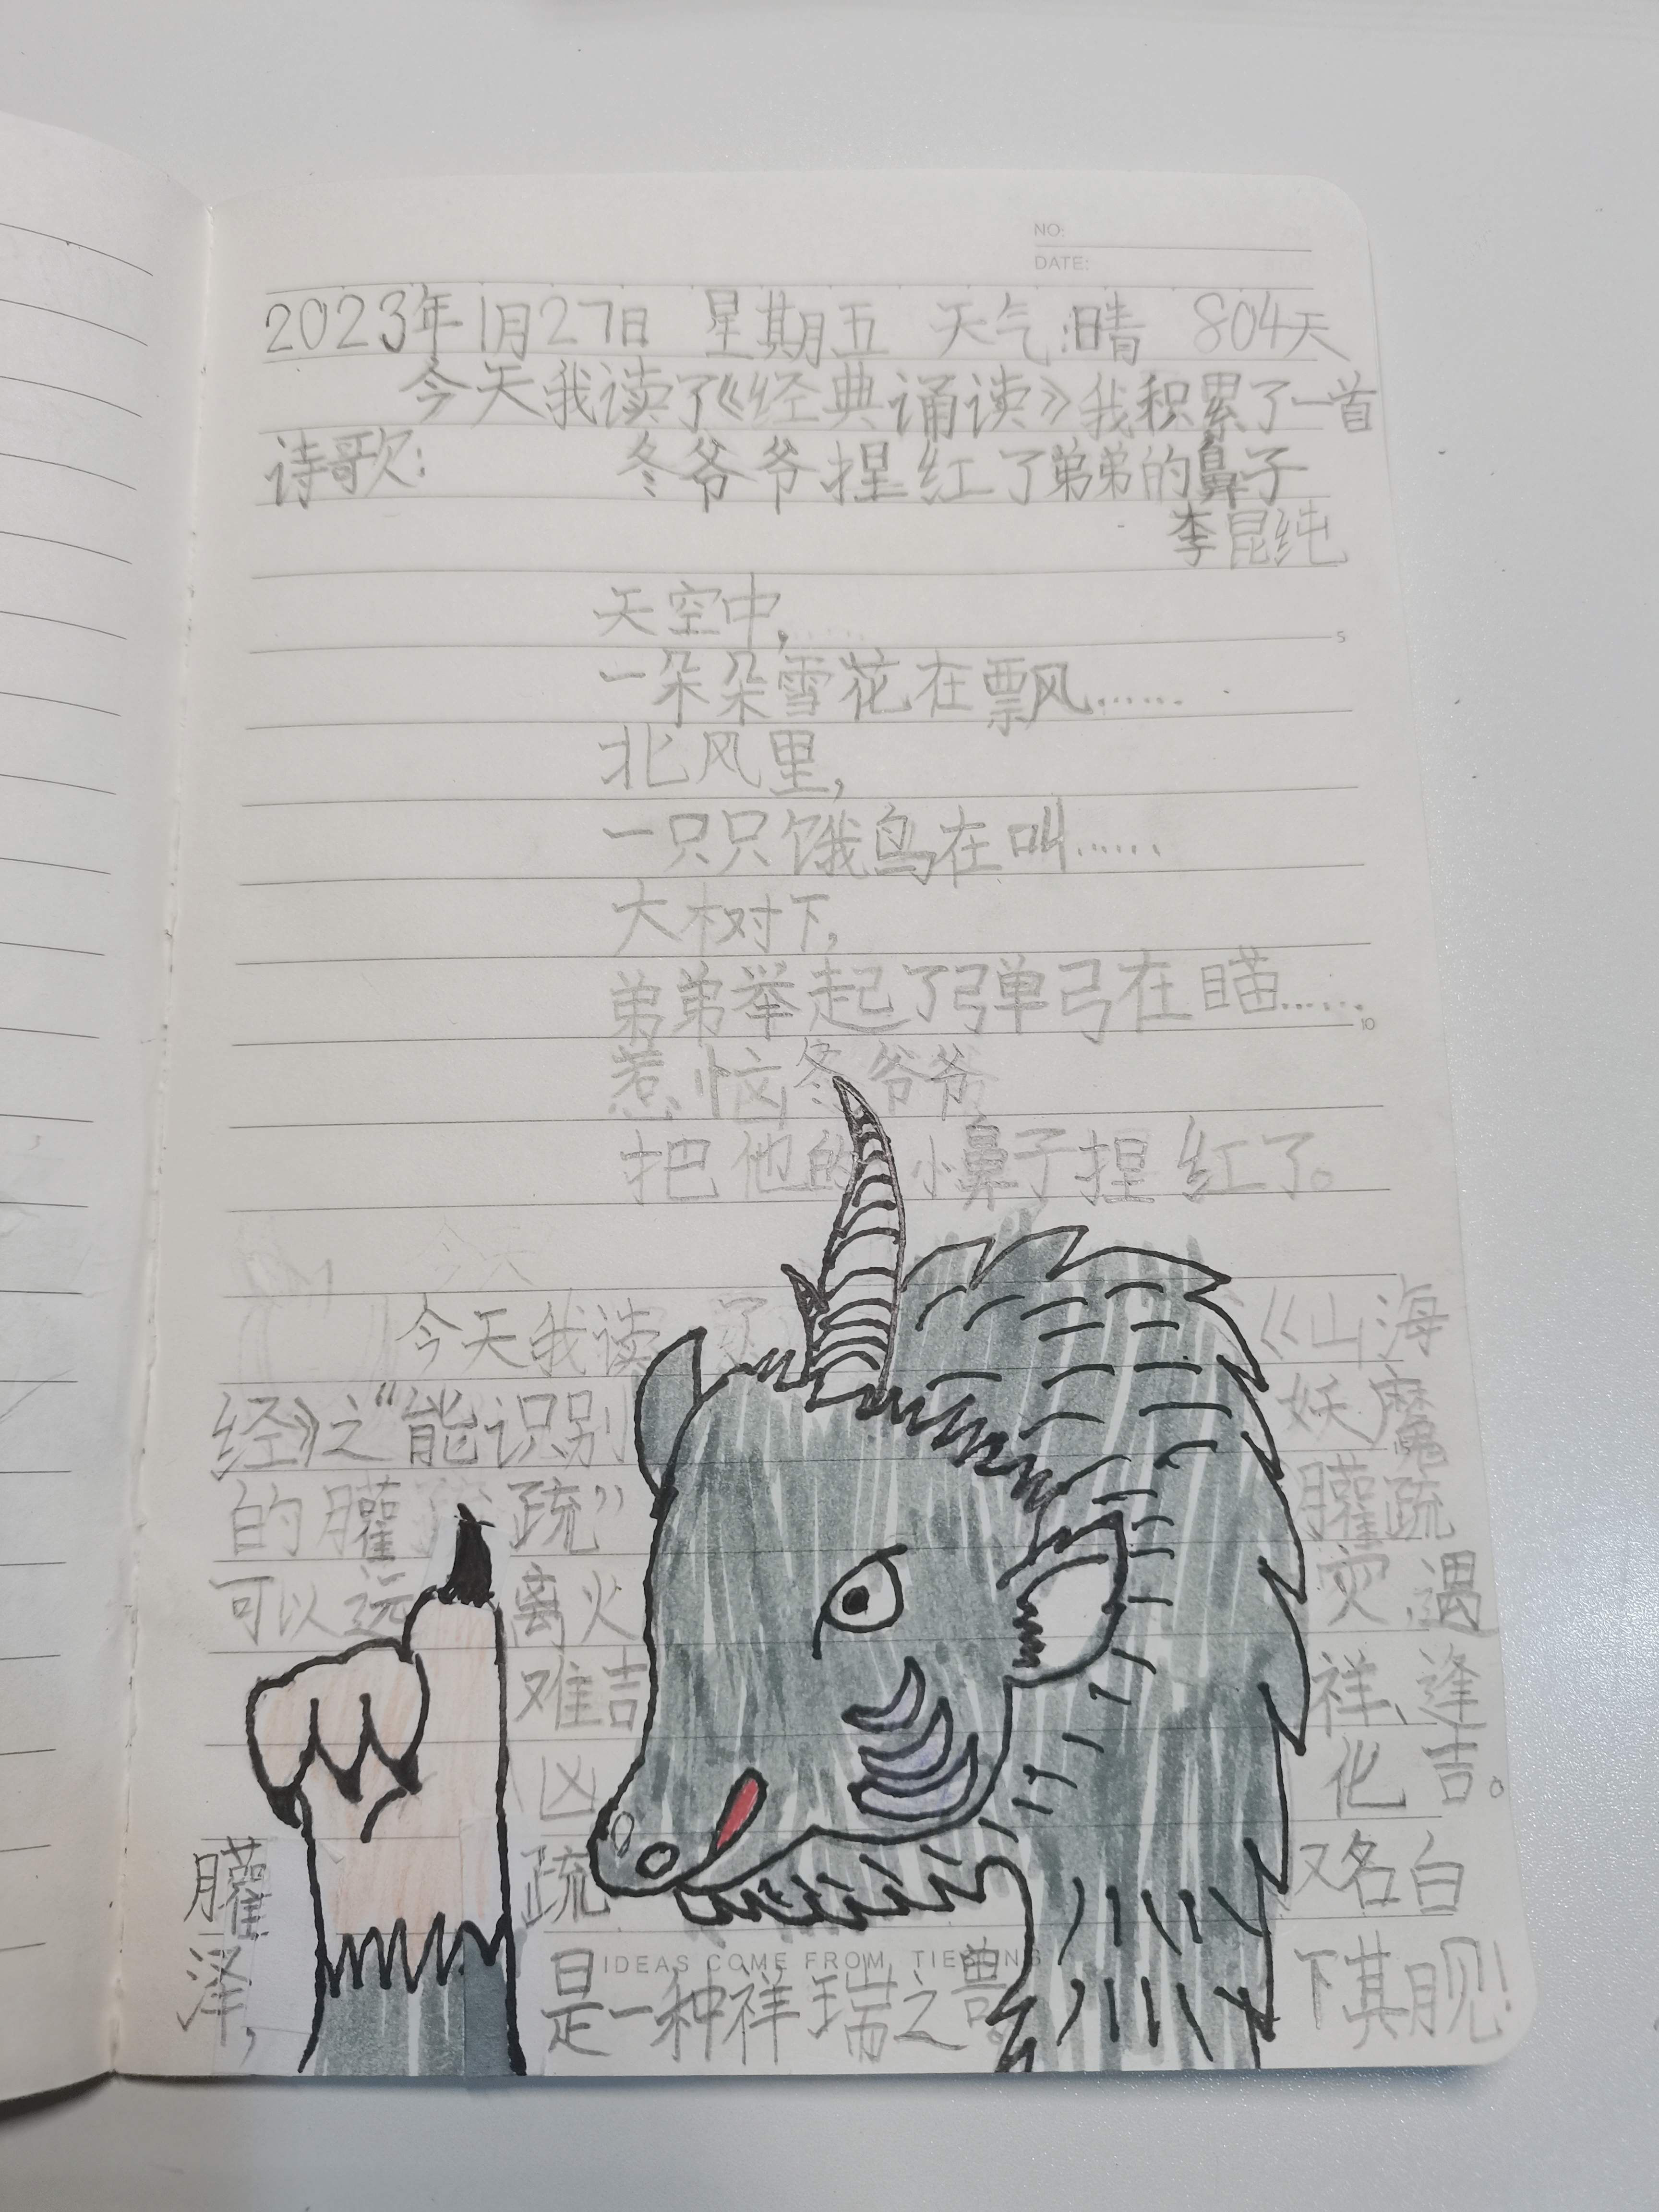 NO:
DATE:
2023年1月27日 星期五 天气:晴 804天
今天我读了《经典诵读》我积累了一首
诗歌: 冬爷爷捏红了弟弟的鼻子
李昆纯
天空中,
一朵朵雪花在飘……
5
北风里,
一只只饿鸟在叫……
大树下,
弟弟举起了弹弓在瞄……
10
惹恼冬爷爷
把他的小鼻子捏红了。
今天我读了《山海
经》之“能识别妖魔
的臛疏”臛疏
可以远离火灾,遇
难吉祥、逢
凶化吉。
臛疏又名白
泽,是一种祥瑞之兽。下其月见!
IDEAS COME FROM